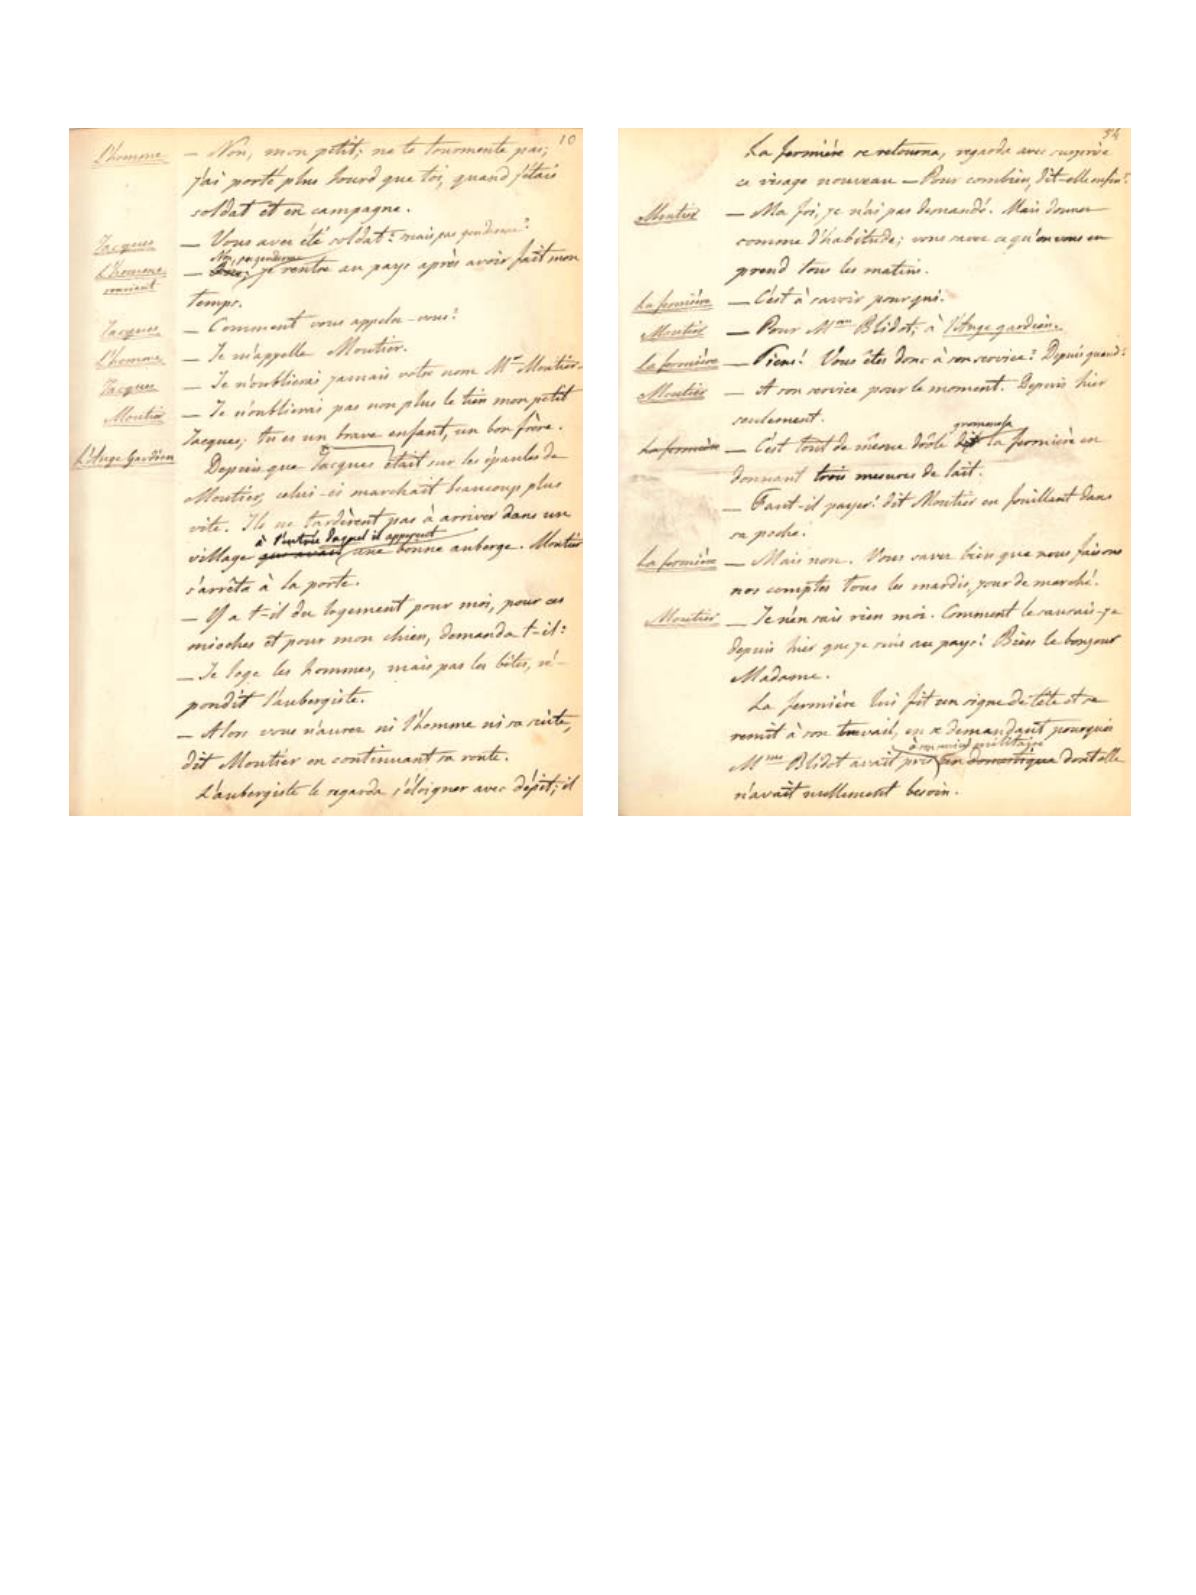 10
L'homme — Non, mon petit; ne te tourmente pas;
j'ai porté plus lourd que toi, quand j'étais
soldat et en campagne.
Jacques — Vous avez été soldat? mais pas gendarme?
Non, pas gendarme
L'homme — je rentre au pays après avoir fait mon
souriant
temps.
Jacques — Comment vous appelez-vous?
L'homme — Je m'appelle Moutier.
Jacques — Je n'oublierai jamais votre nom Mr Moutier.
Moutier — Je n'oublierai pas non plus le tien mon petit
Jacques; tu es un brave enfant, un bon frère.
L'Ange Gardien Depuis que Jacques était sur les épaules de
Moutier, celui-ci marchait beaucoup plus
vite. Ils ne tardèrent pas à arriver dans un
à l'entrée duquel il apperçut
village qui avait une bonne auberge. Moutier
s'arrêta à la porte.
— Y a t-il du logement pour moi, pour ces
mioches et pour mon chien, demanda t-il?
— Je loge les hommes, mais pas les bêtes, ré-
pondit l'aubergiste.
— Alors vous n'aurez ni l'homme ni sa suite,
dit Moutier en continuant sa route.
L'aubergiste le regarda s'éloigner avec dépit; il
54
La fermière se retourna, regarda avec surprise
ce visage nouveau — Pour combien, dit-elle enfin?
Moutier — Ma foi, je n'ai pas demandé. Mais donner
comme d'habitude; vous savez ce qu'on vous en
prend tous les matins.
La fermière — C'est à savoir pour qui.
Moutier — Pour Mme Blidot, à l'Ange gardien.
La fermière — Tiens! Vous êtes donc à son service? Depuis quand?
Moutier — A son service pour le moment. Depuis hier
seulement.
grommela
La fermière — C'est tout de même drôle dit la fermière en
donnant trois mesures de lait.
— Faut-il payer? dit Moutier en fouillant dans
sa poche.
La fermière — Mais non. Vous savez bien que nous faisons
nos comptes tous les mardis, jour de marché.
Moutier — Je n'en sais rien moi. Comment le saurais-je
depuis hier que je suis au pays? Bien le bonjour
Madame.
La fermière lui fit un signe de tête et se
remit à son travail, en se demandant pourquoi
à son service militaire
Mme Blidot avait pris un domestique dont elle
n'avait nullement besoin.